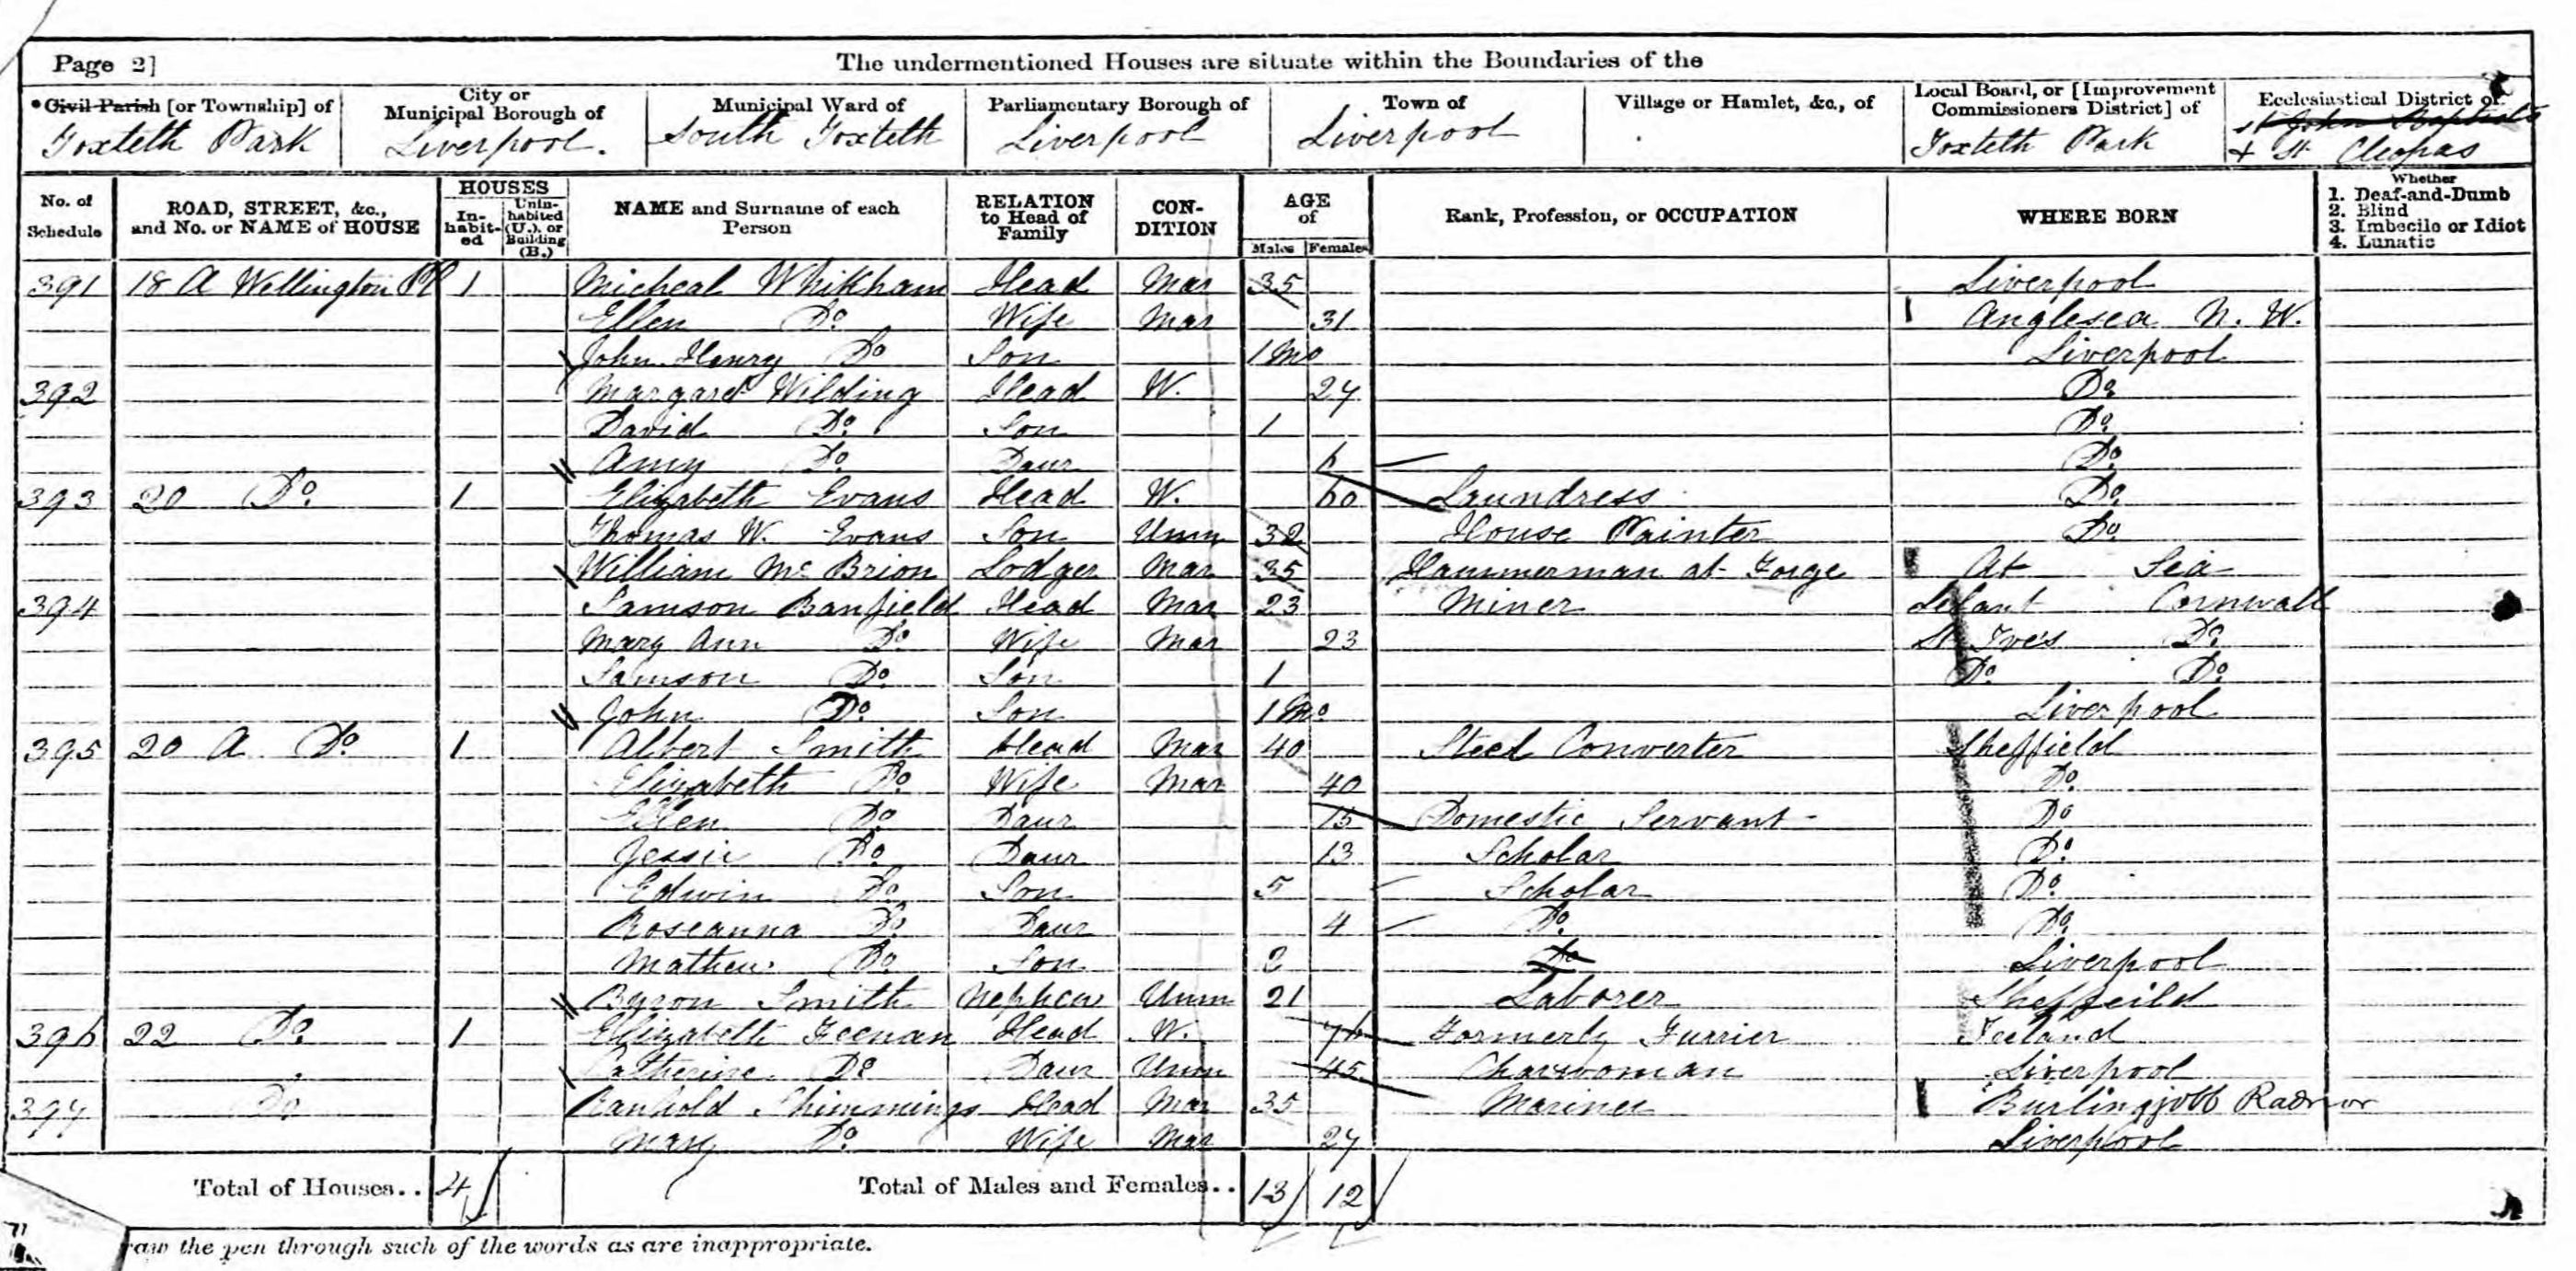 Page 2]
The undermentioned Houses are situate within the Boundaries of the
*Civil Parish [or Township] of
Toxteth Park
City or
Municipal Borough of
Liverpool.
Municipal Ward of
South Toxteth
Parliamentary Borough of
Liverpool
Town of
Liverpool
Village or Hamlet, &c., of
Local Board, or [Improvement
Commissioners District] of
Toxteth Park
Ecclesiastical District of
St John Baptists
+ St Cleopas
No. of Schedule
ROAD, STREET, &c., and No. or NAME of HOUSE
HOUSES
In-habit-ed
Unin-habited (U.), or Building (B.)
NAME and Surname of each Person
RELATION to Head of Family
CON-DITION
AGE of
Males Females
Rank, Profession, or OCCUPATION
WHERE BORN
Whether
1. Deaf-and-Dumb
2. Blind
3. Imbecile or Idiot
4. Lunatic
391 18 A Wellington Pl 1 Micheal Whikham Head Mar 35 Liverpool
Ellen Do Wife Mar 31 Anglesea N. W.
John Henry Do Son 1 Mo Liverpool
392 Margaret Wilding Head W. 27 Do
David Do Son 1 Do
Amy Do Daur 6 Do
393 20 Do 1 Elizabeth Evans Head W. 60 Laundress Do
Thomas W. Evans Son Unm 32 House Painter Do
William Mc Brion Lodger Mar 35 Hammerman at Forge At Sea
394 Samson Banfield Head Mar 23 Miner Lelant Cornwall
Mary Ann Do Wife Mar 23 St Ive's Do
Samson Do Son 1 Do Do
John Do Son 1 Mo Liverpool
395 20 A Do 1 Albert Smith Head Mar 40 Steel Converter Sheffield
Elizabeth Do Wife Mar 40 Do
Ellen Do Daur 15 Domestic Servant Do
Jessie Do Daur 13 Scholar Do
Edwin Do Son 5 Scholar Do
Roseanna Do Daur 4 Do Do
Mathew Do Son 2 Do Liverpool
Byron Smith Nephew Unm 21 Laborer Sheffeild
396 22 Do 1 Elizabeth Feenan Head W. 76 Formerly Furrier Ireland
Catherine Do Daur Unm 45 Charwoman Liverpool
397 Do Shimmings Head Mar 35 Mariner Burlingjobb Radnor
Mary Do Wife Mar 27 Liverpool
Total of Houses.. 4
Total of Males and Females.. 13 12
raw the pen through such of the words as are inappropriate.